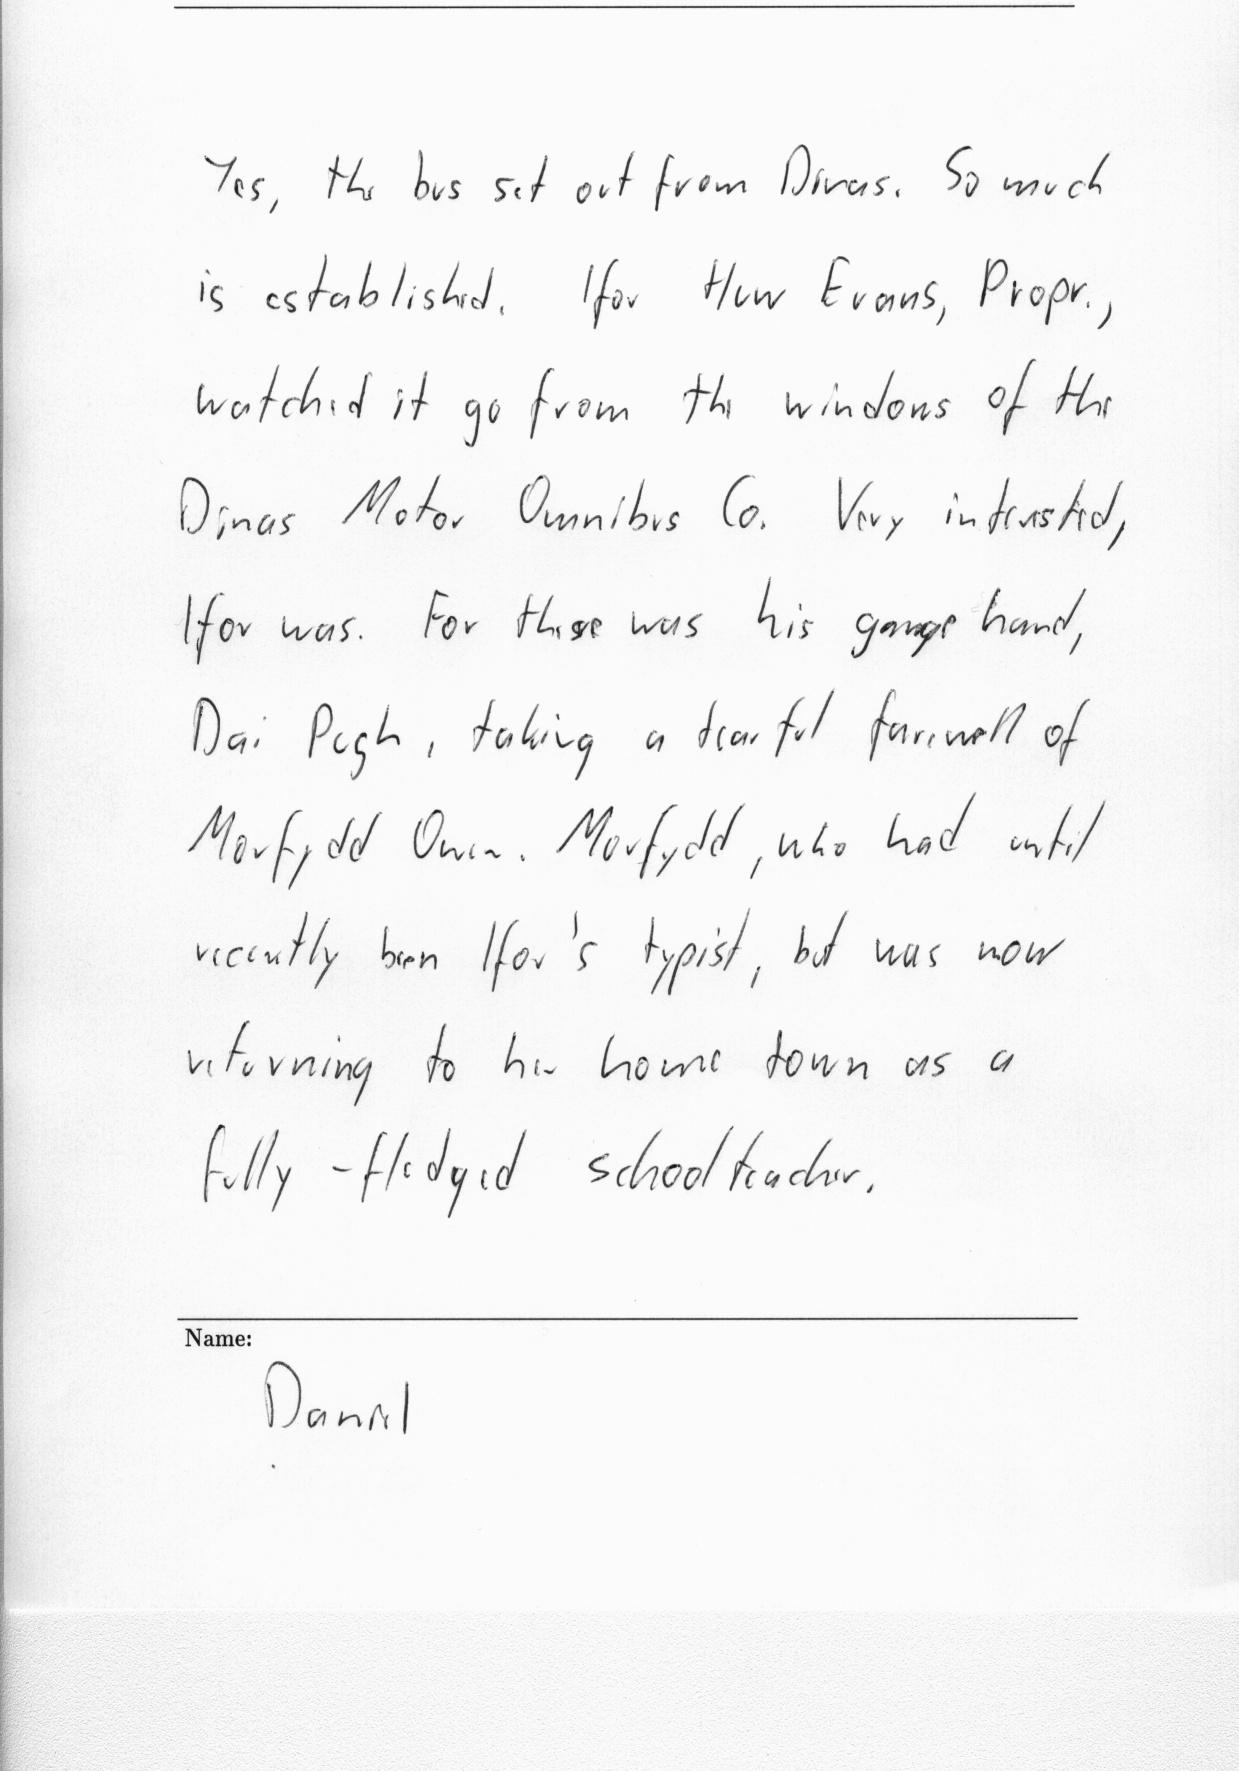 Yes, the bus set out from Dinas. So much
is established. Ifor Huw Evans, Propr.,
watched it go from the windows of the
Dinas Motor Omnibus Co. Very interested,
Ifor was. For there was his garage hand,
Dai Pugh, taking a tearful farewell of
Morfydd Owen. Morfydd, who had until
recently been Ifor's typist, but was now
returning to her home town as a
fully-fledged schoolteacher.
Name:
Daniel